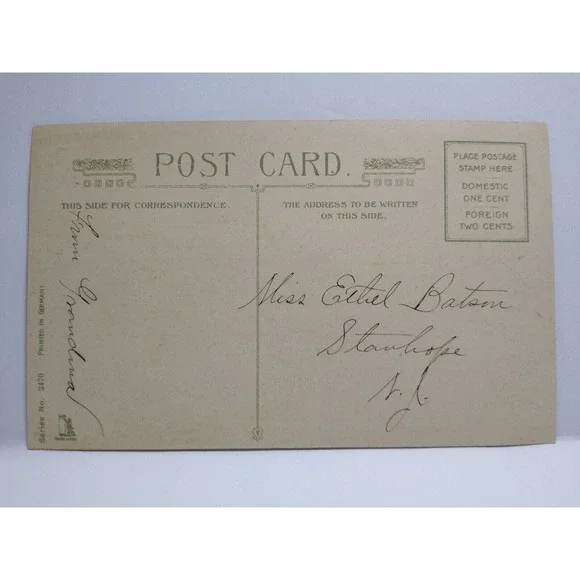 POST CARD.
THIS SIDE FOR CORRESPONDENCE.
THE ADDRESS TO BE WRITTEN
ON THIS SIDE.
PLACE POSTAGE
STAMP HERE
DOMESTIC
ONE CENT
FOREIGN
TWO CENTS
From Grandma
Miss Ethel Batson
Stanhope
N.J.
Series No. 2470 PRINTED IN GERMANY